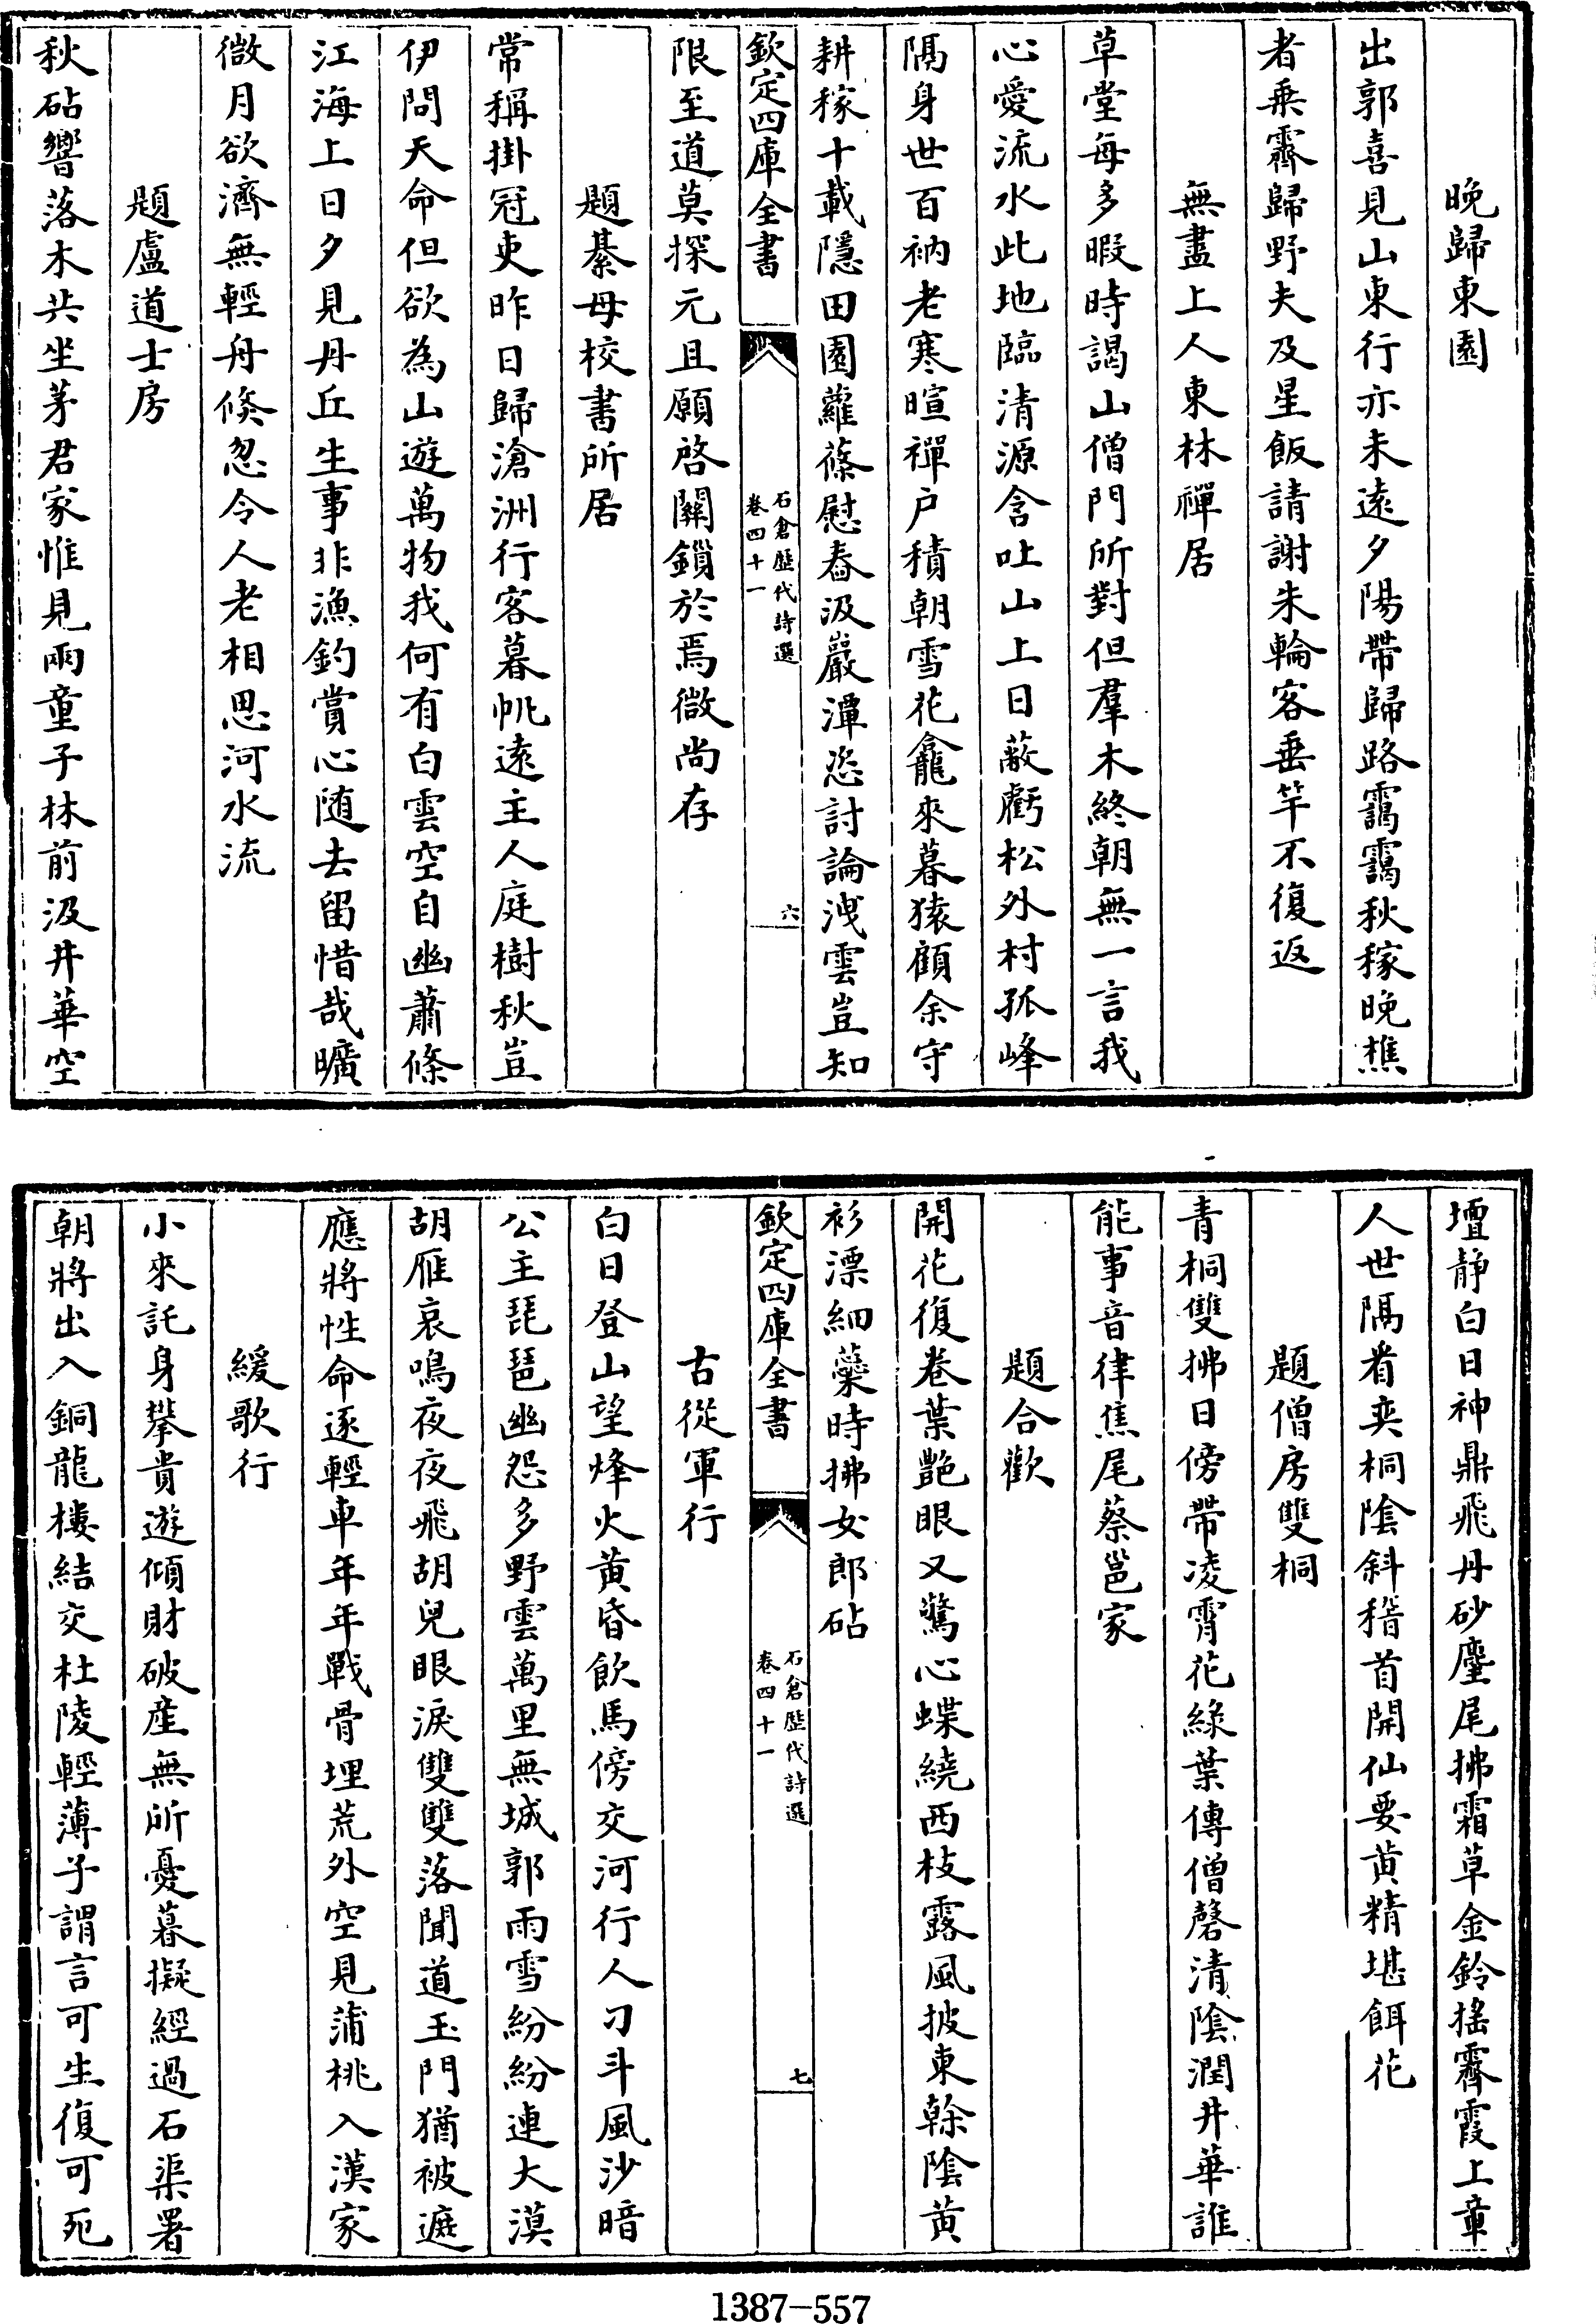 晚歸東園
出郭喜見山東行亦未遠夕陽帶歸路靄靄秋稼晚樵
者乗霽歸野夫及星飯請謝朱輪客垂竿不復返
無盡上人東林禪居
草堂每多暇時謁山僧門所對但羣木終朝無一言我
心愛流水此地臨清源含吐山上日蔽虧松外村孤峰
隔身世百衲老寒暄禪户積朝雪花龕來暮猿顧余守
耕稼十載隱田園蘿蓧慰舂汲巖潭恣討論洩雲豈知
欽定四庫全書
石倉歷代詩選
卷四十一
六
限至道莫探元且願啓關鎖於焉微尚存
題綦母校書所居
常稱掛冠吏昨日歸滄洲行客暮帆遠主人庭樹秋豈
伊問天命但欲為山遊萬物我何有白雲空自幽蕭條
江海上日夕見丹丘生事非漁釣賞心随去留惜哉曠
微月欲濟無輕舟倏忽令人老相思河水流
題盧道士房
秋砧響落木共坐茅君家惟見兩童子林前汲井華空
壇靜白日神鼎飛丹砂麈尾拂霜草金鈴搖霽霞上章
人世隔看奕桐陰斜稽首開仙要黄精堪餌花
題僧房雙桐
青桐雙拂日傍帶凌霄花綠葉傳僧磬清陰潤井華誰
能事音律焦尾蔡邕家
題合歡
開花復卷葉艷眼又驚心蝶繞西枝露風披東榦陰黄
衫漂細蘂時拂女郎砧
欽定四庫全書
石倉歷代詩選
卷四十一
七
古從軍行
白日登山望烽火黄昏飲馬傍交河行人刁斗風沙暗
公主琵琶幽怨多野雲萬里無城郭雨雪紛紛連大漠
胡雁哀鳴夜夜飛胡兒眼淚雙雙落聞道玉門猶被遮
應將性命逐輕車年年戰骨埋荒外空見蒲桃入漢家
緩歌行
小來託身攀貴遊傾財破産無所憂暮擬經過石渠署
朝將出入銅龍樓結交杜陵輕薄子謂言可生復可死
1387-557